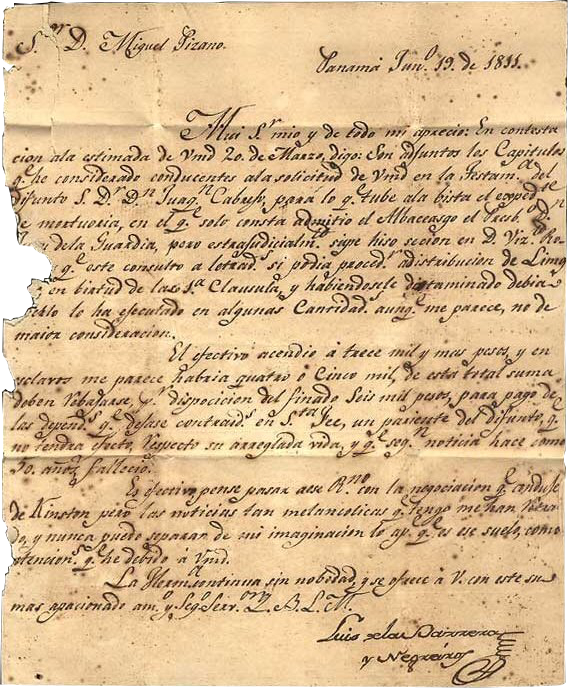 S.or D. Miguel Pizano.
Panamá Jun.o 19. de 1811.
Mui S.r mio y de todo mi aprecio: En contesta
cion ala estimada de Vmd 20 de Marzo, digo: Son adjuntos los Capitulos
q.e he considerado conducentes ala solicitud de Vmd en la Testam.a del
difunto S. D.r D.n Juaq.n Cabrejo, para lo q.e tube ala bista el exped.te
de mortuoria, en el q.e solo consta admitio el Albaceasgo el Presb.o D.n
de la Guardia, pero estrajudicialm.te supe hiso seccion en D. Viz. Ro
q.e este consulto a letrad.s si podia proced.r a distribucion de Limos
en birtud de la 50.a Clausula, y habiendosele dictaminado debia
serlo lo ha ejecutado en algunas Cantidad.s aunq.e me parece, no de
maior consideracion.
El efectivo acendio á trece mil y mas pesos, y en
esclavos me parece habria quatro ó Cinco mil, de esta total suma
deben Rebajarse, p.r disposicion del finado Seis mil pesos, para pago de
las depend.s q.e dejase contraid.s en S.ta Fee, un pariente del difunto, q.e
no tendra efecto, respecto su arreglada vida, y q.e seg.n noticia hace como
30. años fallecio.
Es efectivo pense pasar a ese R.no con la negociacion q.e conduje
de Kinston pero las noticias tan melancolicas q.e tengo me han retra
do, y nunca puedo separar de mi imaginacion lo q.e es ese suelo, como
atencion.s q.e he debido á Vmd.
La Herm.a continua sin nobedad, y se ofrece á V. con este su
mas apacionado am.o y Seg.o Serv.or Q. B. L. M.
Luis de la Barrera
y Negreiros